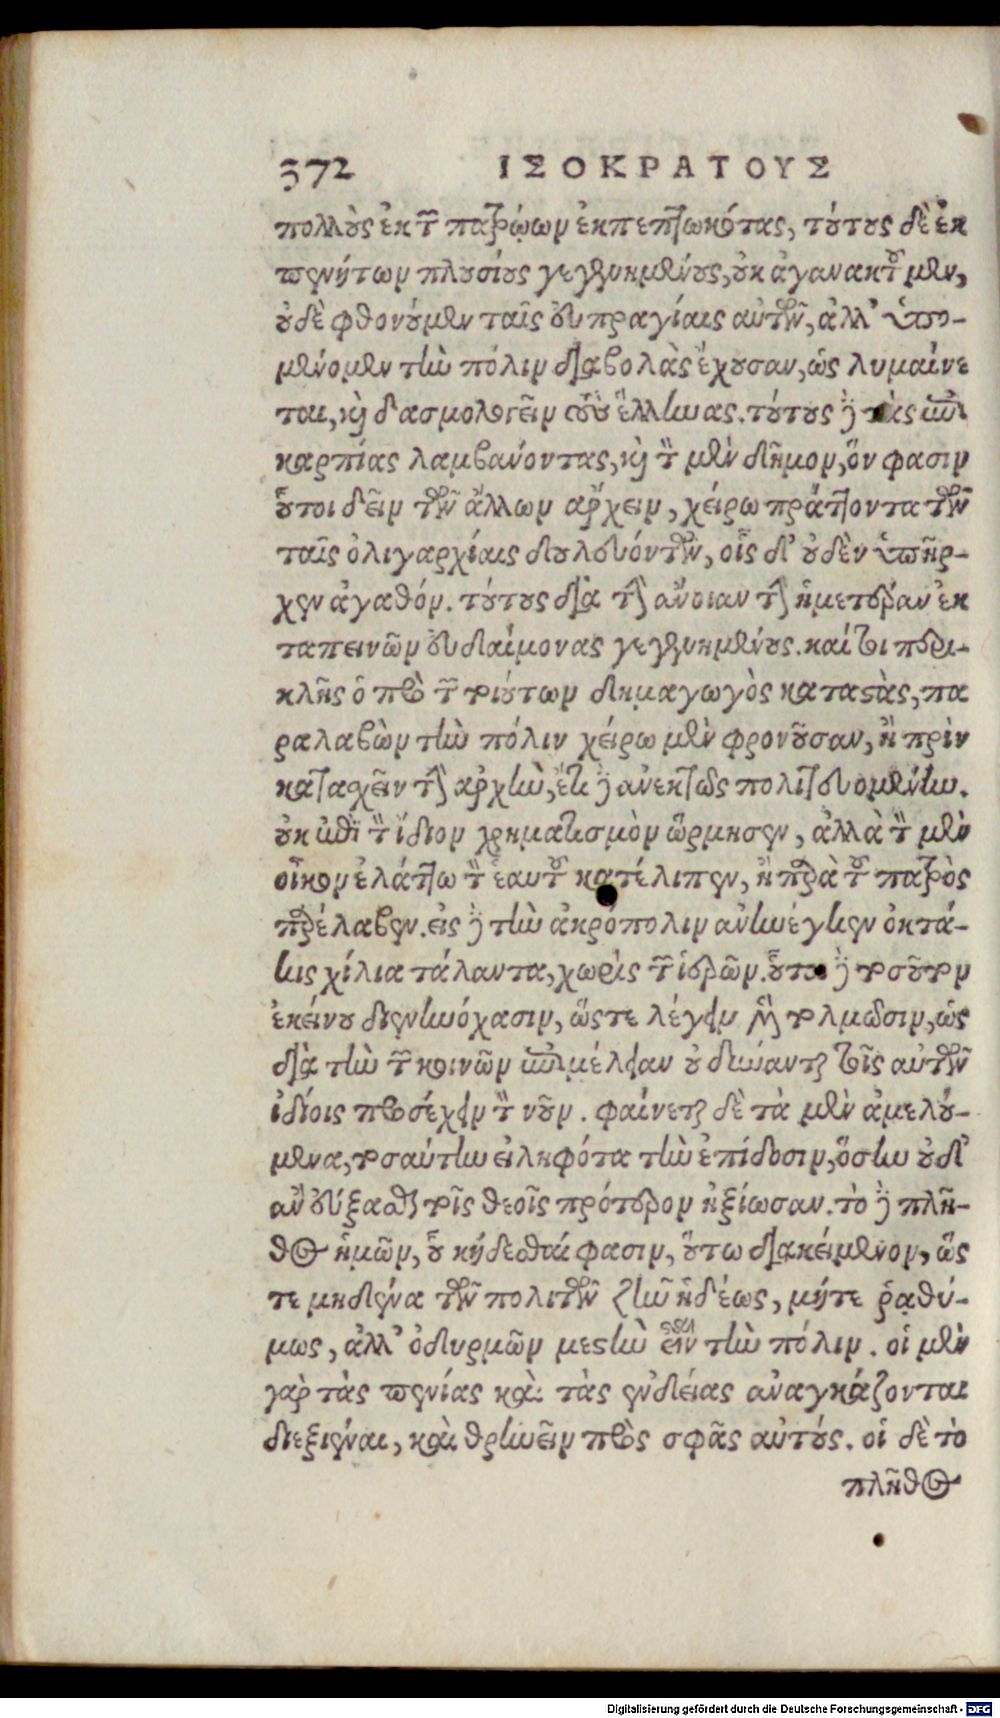 372 ΙΣΟΚΡΑΤΟΥΣ
πολλοὺς ἐκ τῶν πατρῴων ἐκπεπτωκότας, τούτους δὲ ἐκ
πενήτων πλουσίους γεγενημένους, οὐκ ἀγανακτοῦμεν,
οὐδὲ φθονοῦμεν ταῖς εὐπραγίαις αὐτῶν, ἀλλ' ὑπο-
μένομεν τὴν πόλιν διαβολὰς ἔχουσαν, ὡς λυμαίνε
ται, καὶ δασμολογεῖν τοὺς ἕλληνας. τούτους δὲ τὰς ἐπι
καρπίας λαμβάνοντας, καὶ τὸν μὲν δῆμον, ὅν φασιν
οὗτοι δεῖν τῶν ἄλλων ἄρχειν, χεῖρω πράττοντα τῶν
ταῖς ὀλιγαρχίαις δουλευόντων, οἷς δ' οὐδὲν ὑπῆρ-
χεν ἀγαθόν. τούτους διὰ τὴν ἄνοιαν τὴν ἡμετέραν ἐκ
ταπεινῶν εὐδαίμονας γεγενημένους. καίτοι περι-
κλῆς ὁ πρὸ τῶν τοιούτων δημαγωγὸς καταστὰς, πα
ραλαβὼν τὴν πόλιν χείρω μὲν φρονοῦσαν, ἢ πρὶν
κατασχεῖν τὴν ἀρχὴν, ἔτι δὲ ἀνεκτῶς πολιτευομένην.
οὐκ ἐπὶ τὸν ἴδιον χρηματισμὸν ὥρμησεν, ἀλλὰ τὸν μὲν
οἶκον ἐλάττω τὸν ἑαυτοῦ κατέλιπεν, ἢ παρὰ τοῦ πατρὸς
παρέλαβεν. εἰς δὲ τὴν ἀκρόπολιν ἀνήνεγκεν ὀκτά-
κις χίλια τάλαντα, χωρὶς τῶν ἱερῶν. οὗτοι δὲ τοσοῦτον
ἐκείνου διενηνόχασιν, ὥστε λέγειν μὲν τολμῶσιν, ὡς
διὰ τὴν τῶν κοινῶν ἐπιμέλειαν οὐ δύνανται τοῖς αὐτῶν
ἰδίοις προσέχειν τὸν νοῦν. φαίνεται δὲ τὰ μὲν ἀμελού-
μενα, τοσαύτην εἰληφότα τὴν ἐπίδοσιν, ὅσην οὐδ'
ἂν εὔξασθαι τοῖς θεοῖς πρότερον ἠξίωσαν. τὸ δὲ πλῆ-
θος ἡμῶν, οὗ κήδεσθαί φασιν, οὕτω διακείμενον, ὥς
τε μηδένα τῶν πολιτῶν ζῆν ἡδέως, μήτε ῥαθύ-
μως, ἀλλ' ὀδυρμῶν μεστὴν εἶναι τὴν πόλιν. οἱ μὲν
γὰρ τὰς πενίας καὶ τὰς ἐνδείας ἀναγκάζονται
διεξιέναι, καὶ θρηνεῖν πρὸς σφᾶς αὐτούς. οἱ δὲ τὸ
πλῆθος
Digitalisierung gefördert durch die Deutsche Forschungsgemeinschaft - DFG